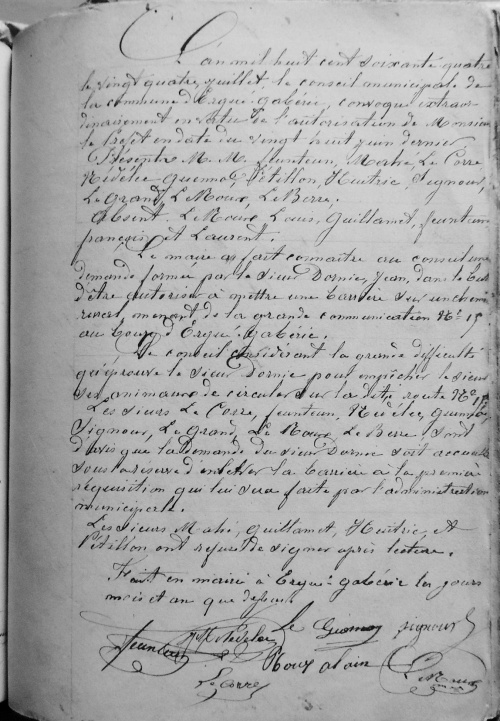 L'an mil huit cent soixante quatre
le vingt quatre juillet le conseil municipale de
la commune d'Ergué-gabéric, convoqué extraor
dinairement en vertu de l'autorisation de Monsieur
le Préfet en date du vingt huit juin dernier
Présents M. M. feunteun, Mahé Le Corre
Nédélec Quéméré, Pétillon, Huitric, Signour,
Le Grand, Le Roux, Le Berre.
Absent Le Roux Louis, Guillamet, feunteun
françois, et Laurent.
Le maire a fait connaitre au conseil une
demande formée par le sieur Dornic, Jean, dans le but
d'être autoriser à mettre une barriere sur un chemin
rural, menant de la grande communication N° 15
au bourg d'Ergué-Gabéric.
Le conseil considérant la grande difficulté
qu'éprouve le sieur Dornic pour empêcher le sieur
ses animaux de circuler sur la dite route N° 15
Les sieurs Le Corre, feunteun, Nédélec, Quéméré
Signour, Le Grand, Le Roux, Le Berre, sont
d'avis que la demande du sieur Dornic soit accueillie
sous la reserve d'enlever la barriere à la premiere
réquisition qui lui sera faite par l'administration
municipale.
Les sieurs Mahé, Guillamet, Huitric, et
Pétillon ont refusé de signer après lecture.
Fait en mairie à Ergué-gabéric les jours
mois et an que dessus.
feunteun Nédélec Le Signour
Roux alain Le Roux
Le Corre